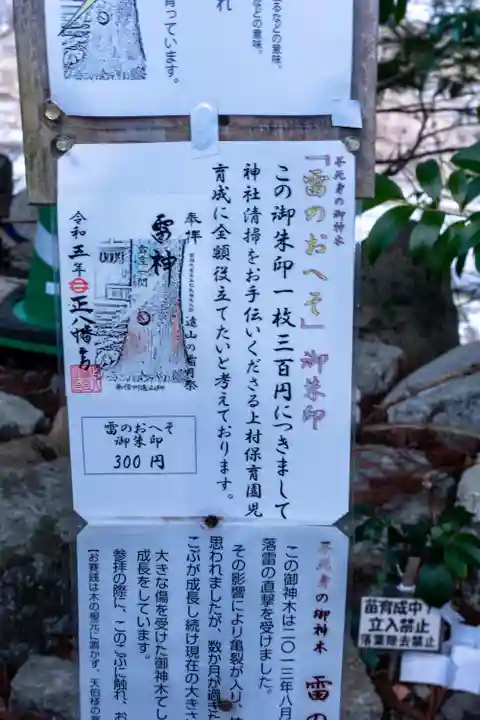 るなどの意味。
などの意味。
れ
育っています。
不死身の御神木
「雷のおへそ」御朱印
この御朱印一枚三百円につきまして
神社清掃をお手伝いくださる上村保育園児
育成に全額役立てたいと考えております。
奉拝
遠山の霜月祭
雷神
令和五年
正八幡宮
雷のおへそ
御朱印
300 円
不死身の御神木
雷の
この御神木は二〇一三年八月
落雷の直撃を受けました。
その影響により亀裂が入り、
思われましたが、数か月が過ぎた
こぶが成長し続け現在の大きさ
大きな傷を受けた御神木でし
成長をしています。
参拝の際に、このこぶに触れ、お
【お賽銭は木の根元に置かず、天伯様の
苗育成中！
立入禁止
落葉除去禁止